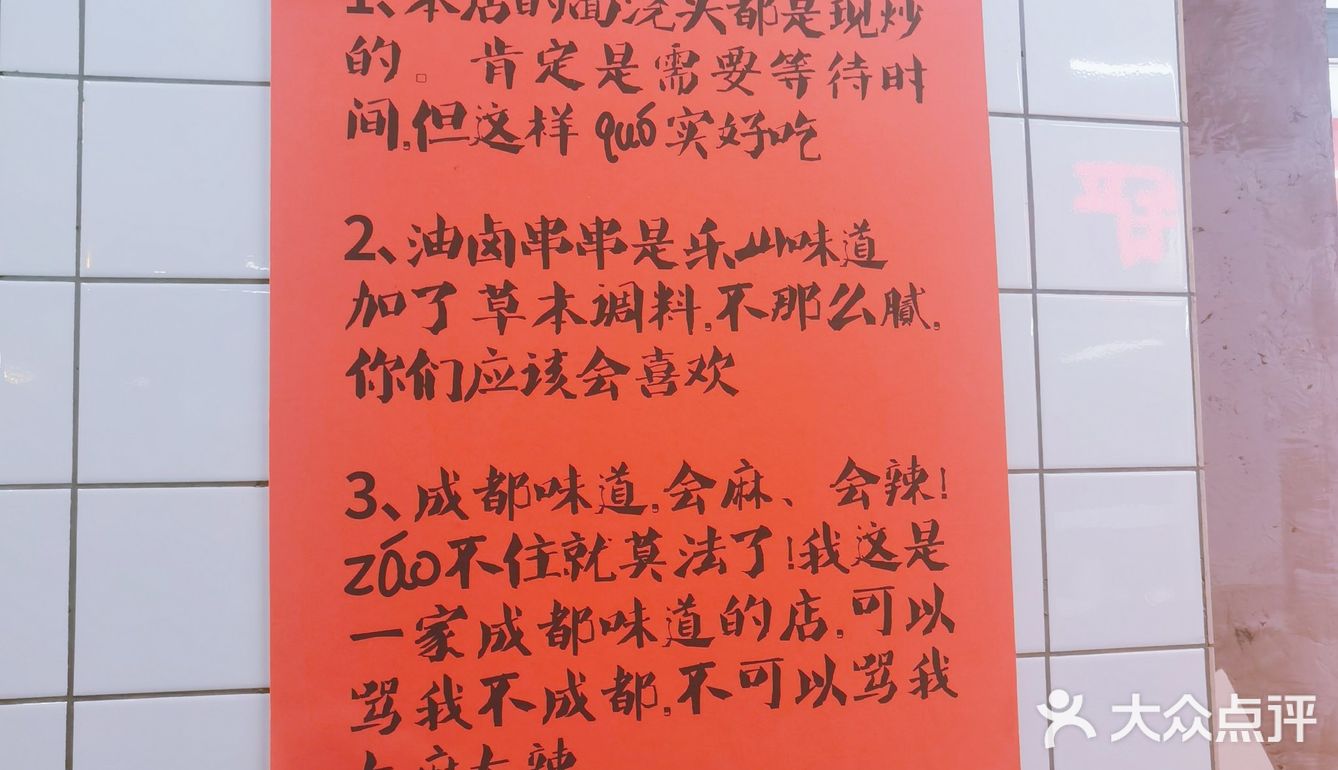 1、本店的面浇头都是现炒
的。肯定是需要等待时
间,但这样quó实好吃
2、油卤串串是乐山味道
加了草本调料,不那么腻,
你们应该会喜欢
3、成都味道,会麻、会辣!
záo不住就莫法了!我这是
一家成都味道的店,可以
骂我不成都,不可以骂我
大众点评